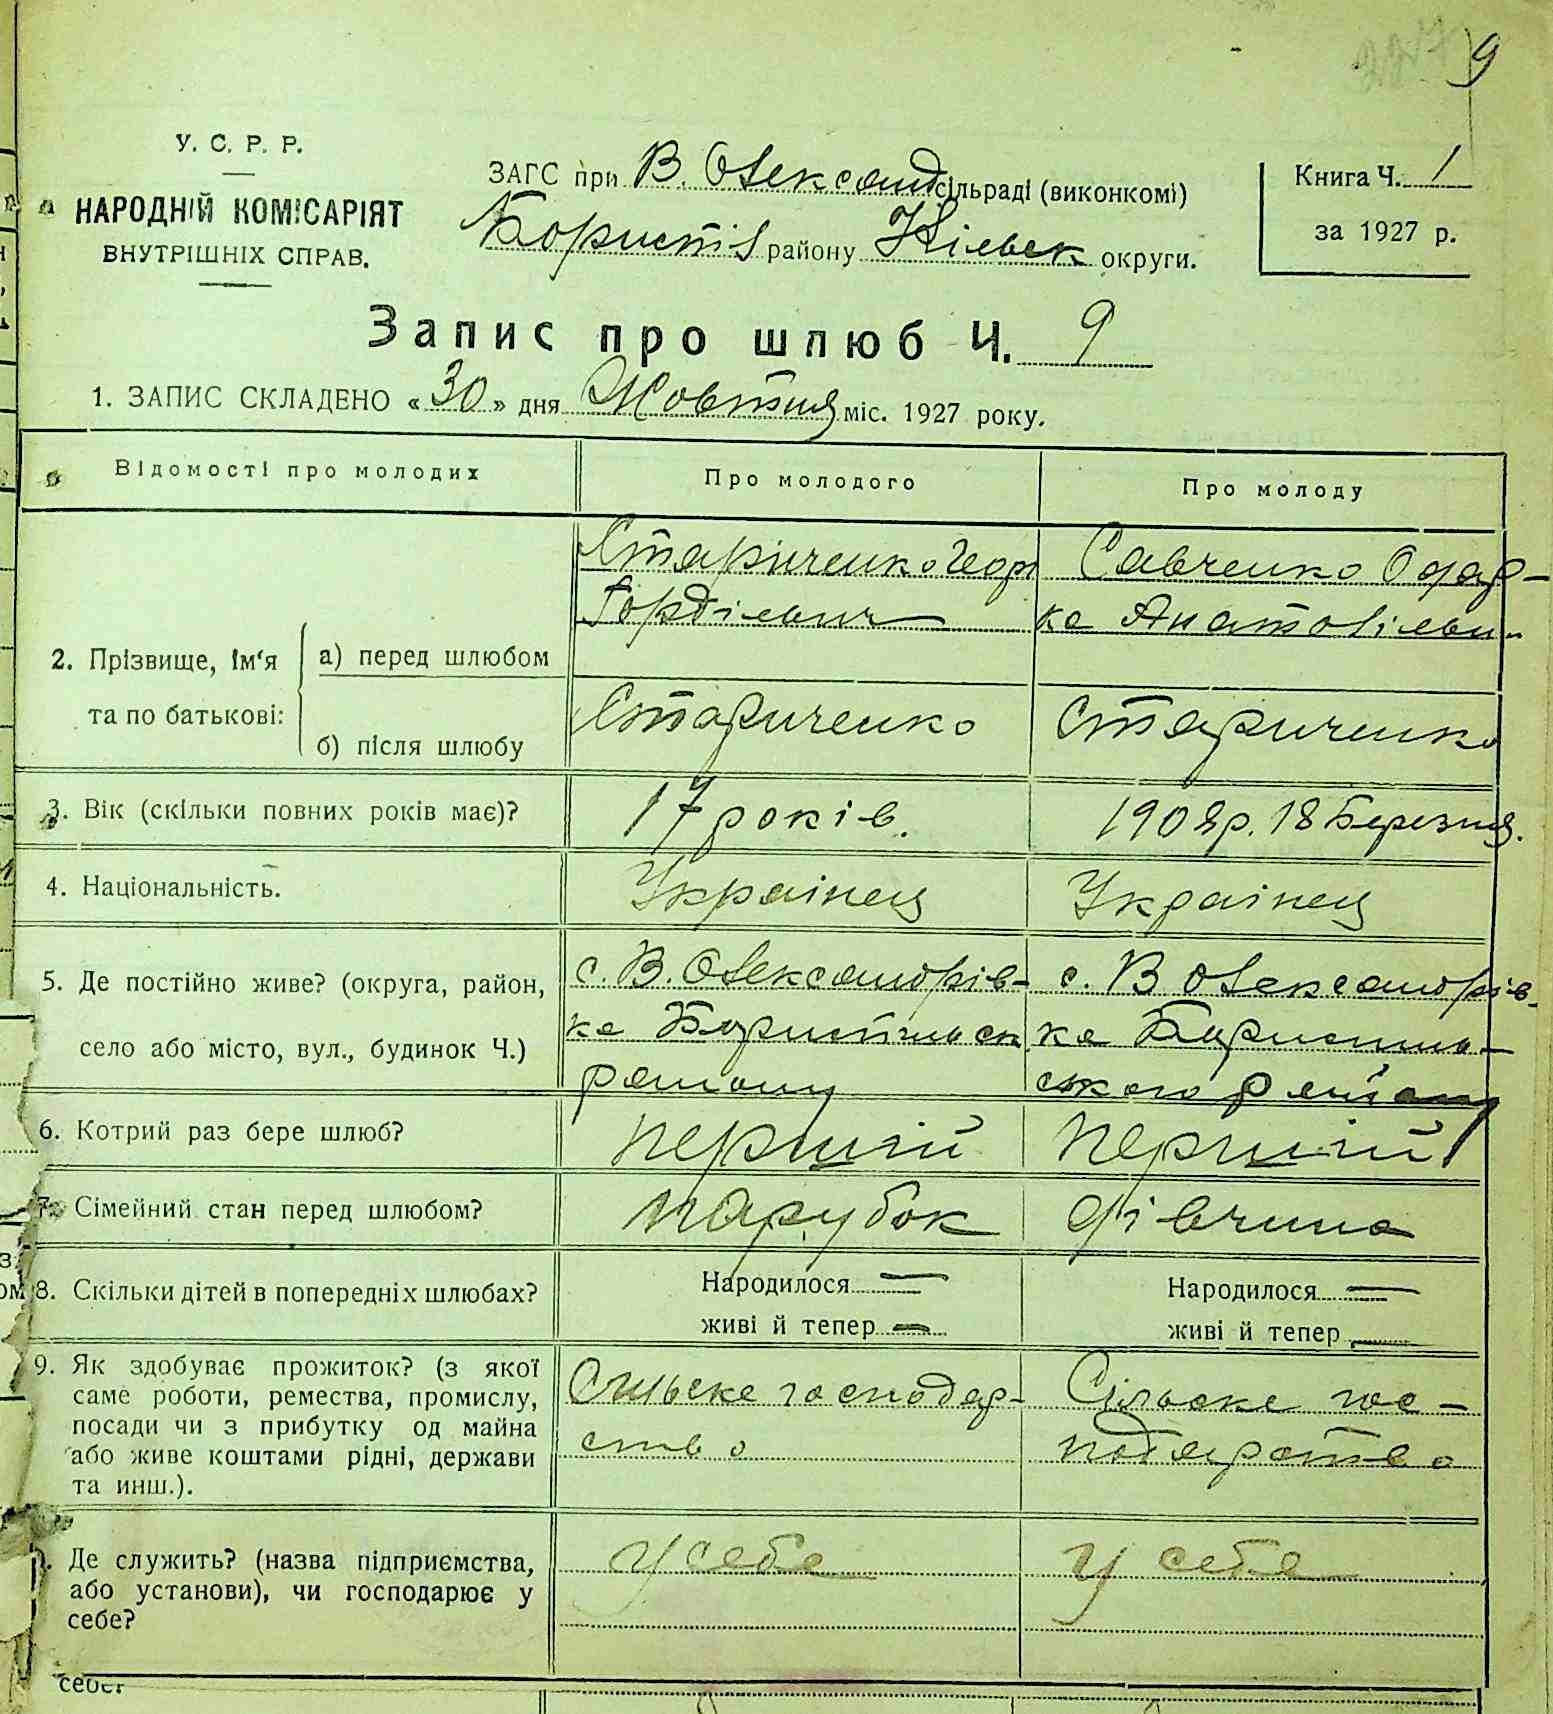 9
У. С. Р. Р.
НАРОДНІЙ КОМІСАРІЯТ
ВНУТРІШНІХ СПРАВ.
ЗАГС при В. Олександ сільраді (виконкомі)
Бористіл району Київськ округи.
Книга Ч. 1
за 1927 р.
Запис про шлюб Ч. 9
1. ЗАПИС СКЛАДЕНО «30» дня Жовтня міс. 1927 року.
Відомості про молодих
Про молодого
Про молоду
2. Прізвище, ім'я
та по батькові:
а) перед шлюбом
Стариченко Геор
Гордієвич
Савченко Одар-
ка Анатолієвн
б) після шлюбу
Стариченко
Стариченко
3. Вік (скільки повних років має)?
17 років.
1908 р. 18 Березня.
4. Національність.
Українец
Українец
5. Де постійно живе? (округа, район,
село або місто, вул., будинок Ч.)
с. В. Олександрів-
ка Бористільськ
району
с. В Олександрів-
ка Бориспіль-
ського району
6. Котрий раз бере шлюб?
перший
перший
7. Сімейний стан перед шлюбом?
парубок
дівчина
8. Скільки дітей в попередніх шлюбах?
Народилося —
живі й тепер —
Народилося —
живі й тепер
9. Як здобуває прожиток? (з якої
саме роботи, ремества, промислу,
посади чи з прибутку од майна
або живе коштами рідні, держави
та инш.).
Сильске господар-
ство
Сільске гос-
подарство
Де служить? (назва підприємства,
або установи), чи господарює у
себе?
у себе
у себе
себе?